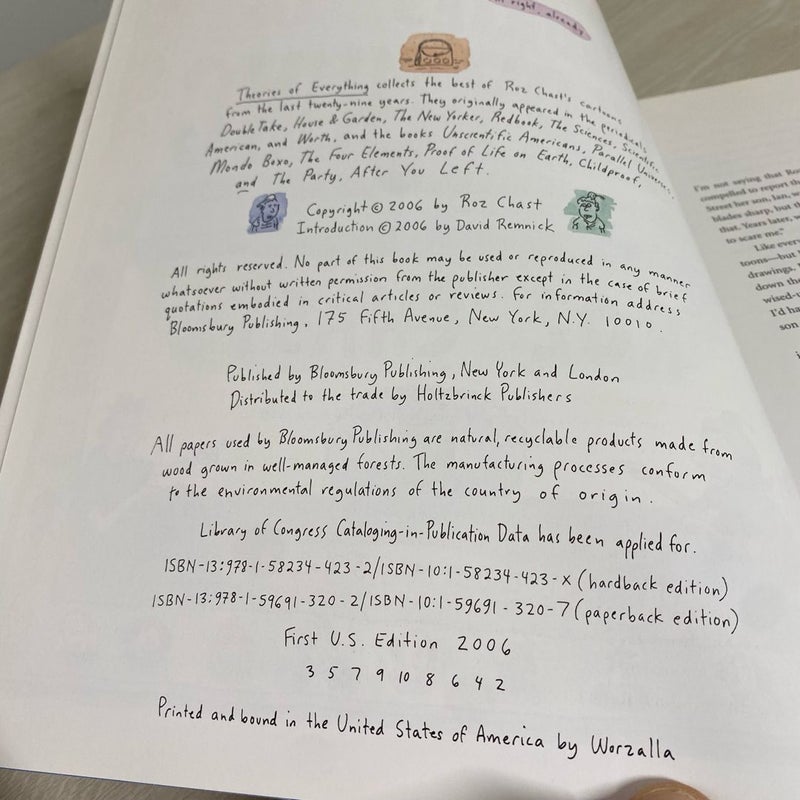 right, already
Theories of Everything collects the best of Roz Chast's cartoons
from the last twenty-nine years. They originally appeared in the periodicals
DoubleTake, House & Garden, The New Yorker, Redbook, The Sciences, Scientific
American, and Worth, and the books Unscientific Americans, Parallel Universes,
Mondo Boxo, The Four Elements, Proof of Life on Earth, Childproof,
and The Party, After You Left.
Copyright © 2006 by Roz Chast
Introduction © 2006 by David Remnick
All rights reserved. No part of this book may be used or reproduced in any manner
whatsoever without written permission from the publisher except in the case of brief
quotations embodied in critical articles or reviews. For information address
Bloomsbury Publishing, 175 Fifth Avenue, New York, N.Y. 10010.
Published by Bloomsbury Publishing, New York and London
Distributed to the trade by Holtzbrinck Publishers
All papers used by Bloomsbury Publishing are natural, recyclable products made from
wood grown in well-managed forests. The manufacturing processes conform
to the environmental regulations of the country of origin.
Library of Congress Cataloging-in-Publication Data has been applied for.
ISBN-13:978-1-58234-423-2/ISBN-10:1-58234-423-X (hardback edition)
ISBN-13:978-1-59691-320-2/ISBN-10:1-59691-320-7 (paperback edition)
First U.S. Edition 2006
3 5 7 9 10 8 6 4 2
Printed and bound in the United States of America by Worzalla
I'm not saying that Ro
compelled to report th
Street her son, Ian, w
blades sharp, but th
that. Years later, w
to scare me."
Like every
toons—but
drawings,
down the
wised-
I'd ha
son